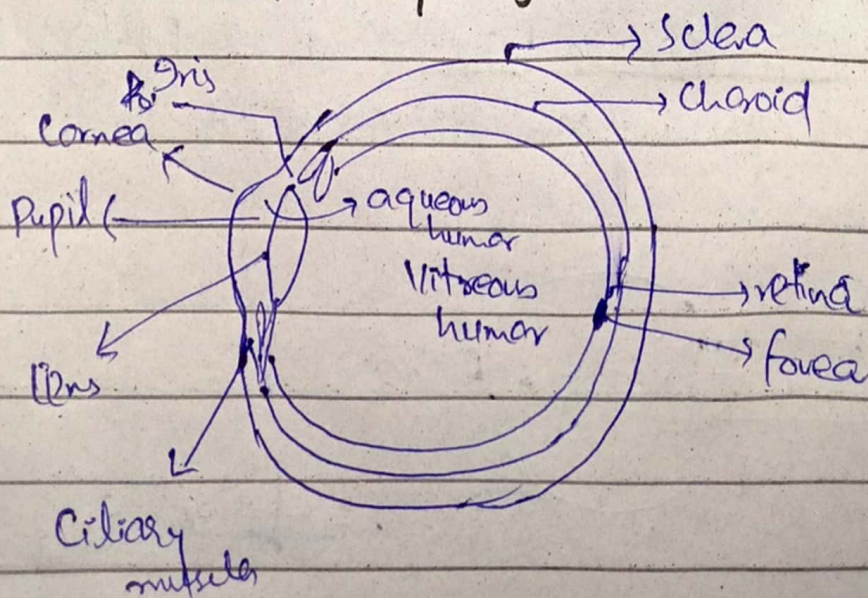 Sclera
Iris
Choroid
Cornea
Pupil
aqueous
humor
Vitreous
humor
retina
fovea
lens
Ciliary